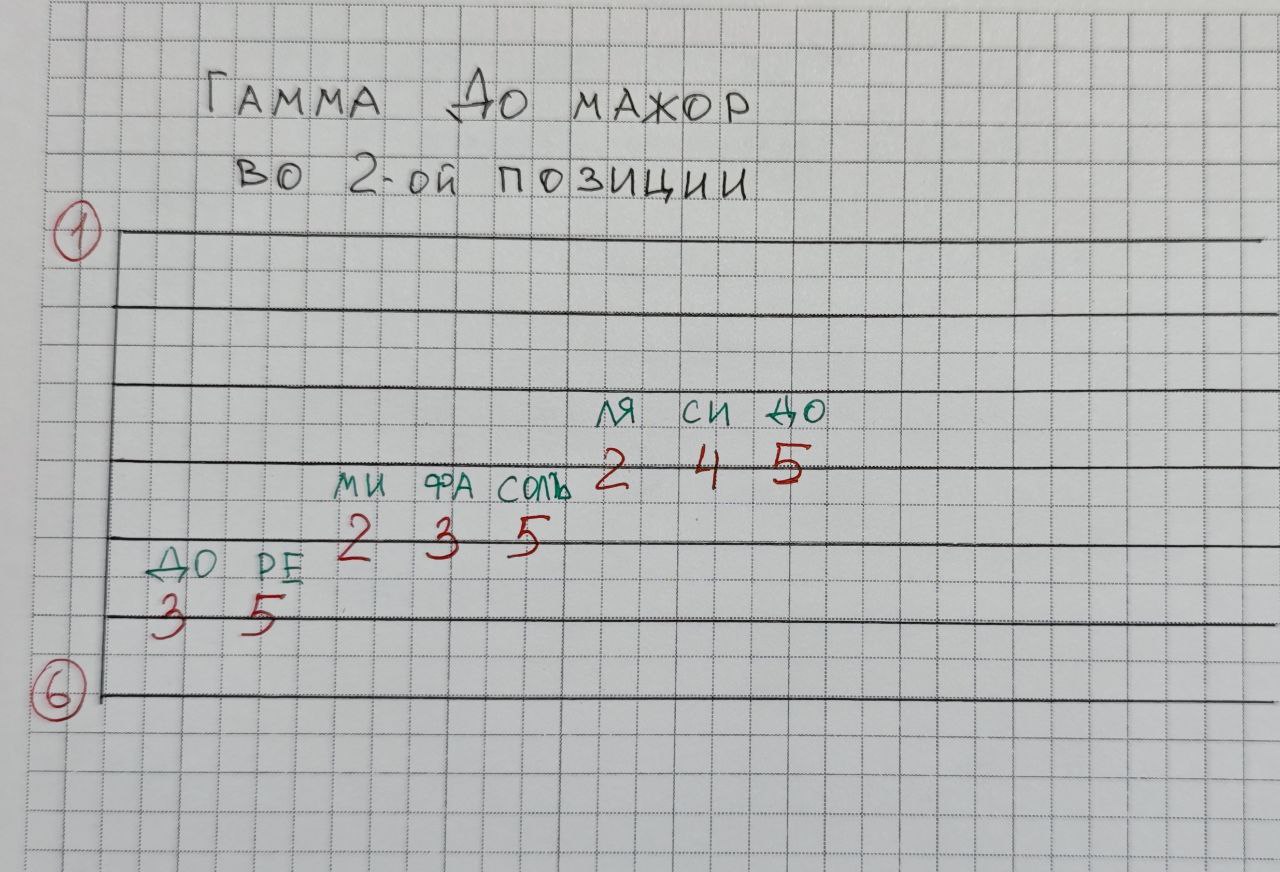 Гамма До мажор
во 2-ой позиции
1
ля си до
2 4 5
ми фа соль
2 3 5
до ре
3 5
6